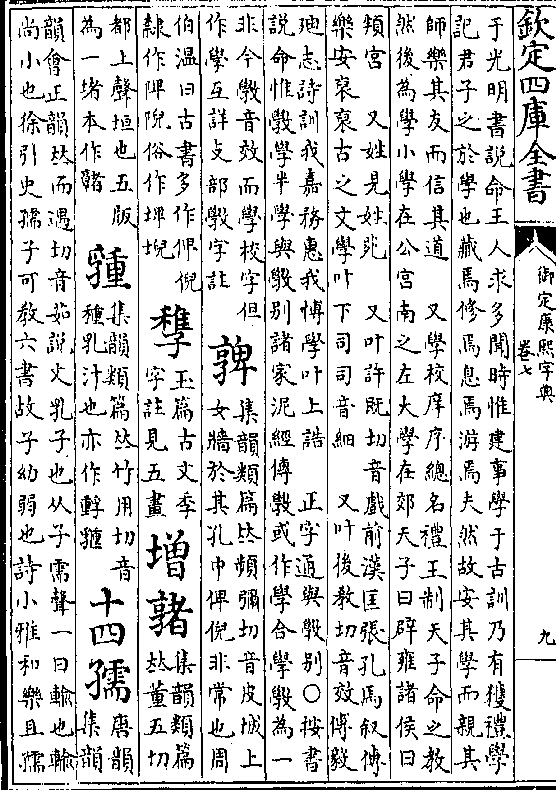 欽定四庫全書
御定康熙字典
卷七
九
于光明書說命王人求多聞時惟建事學于古訓乃有獲禮學
記君子之於學也藏焉修焉息焉游焉夫然故安其學而親其
師樂其友而信其道　又學校庠序總名禮王制天子命之教
然後為學小學在公宮南之左大學在郊天子曰辟雍諸侯曰
頖宮　又姓見姓苑　又叶許既切音戲前漢匡張孔馬叙傳
樂安裒裒古之文學叶下司司音細　又叶後教切音效傅毅
廸志詩訓我嘉務惠我博學叶上誥　正字通與斆別○按書
說命惟斆學半學與斆別諸家泥經傳斆或作學合學斆為一
非今斆音效而學校字但
作學互詳攴部斆字註
𡦛
集韻類篇𠀤頻彌切音皮城上
女牆於其孔中俾倪非常也周
伯溫曰古書多作俾倪
隸作陴隉俗作埤堄
𥡜
玉篇古文季
字註見五畫
增
𡦡
集韻類篇
𠀤董五切
都上聲垣也五版
為一堵本作𩫳
𡦜
集韻類篇𠀤竹用切音
種乳汁也亦作𨌁𤛱
十四
孺
唐韻
集韻
韻會正韻𠀤而遇切音茹說文乳子也从子需聲一曰輸也輸
尚小也徐引史孺子可教六書故子幼弱也詩小雅和樂且孺